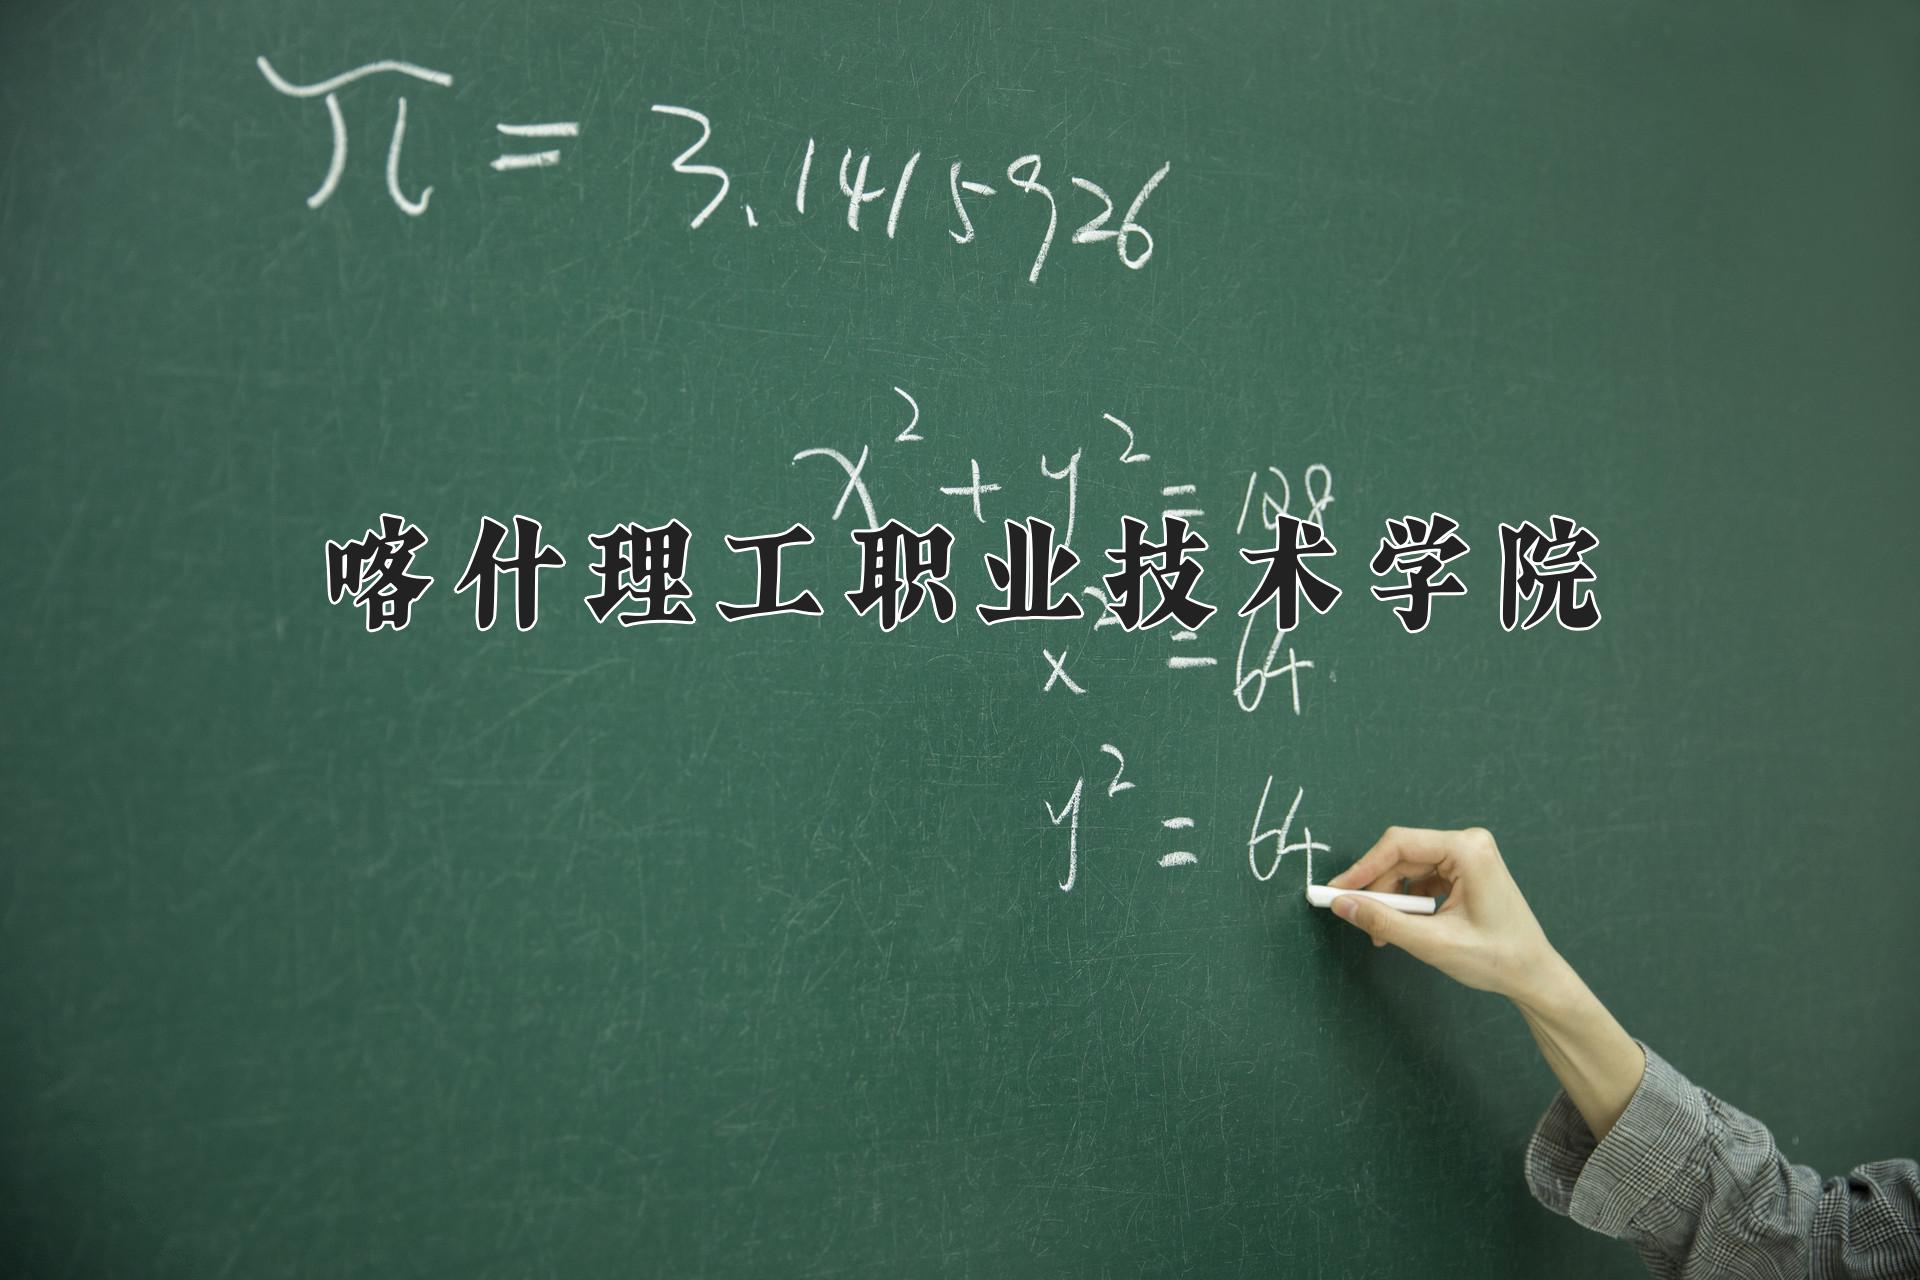 π = 3.1415926
x² + y² = 128
喀什理工职业技术学院
x² = 64
y² = 64